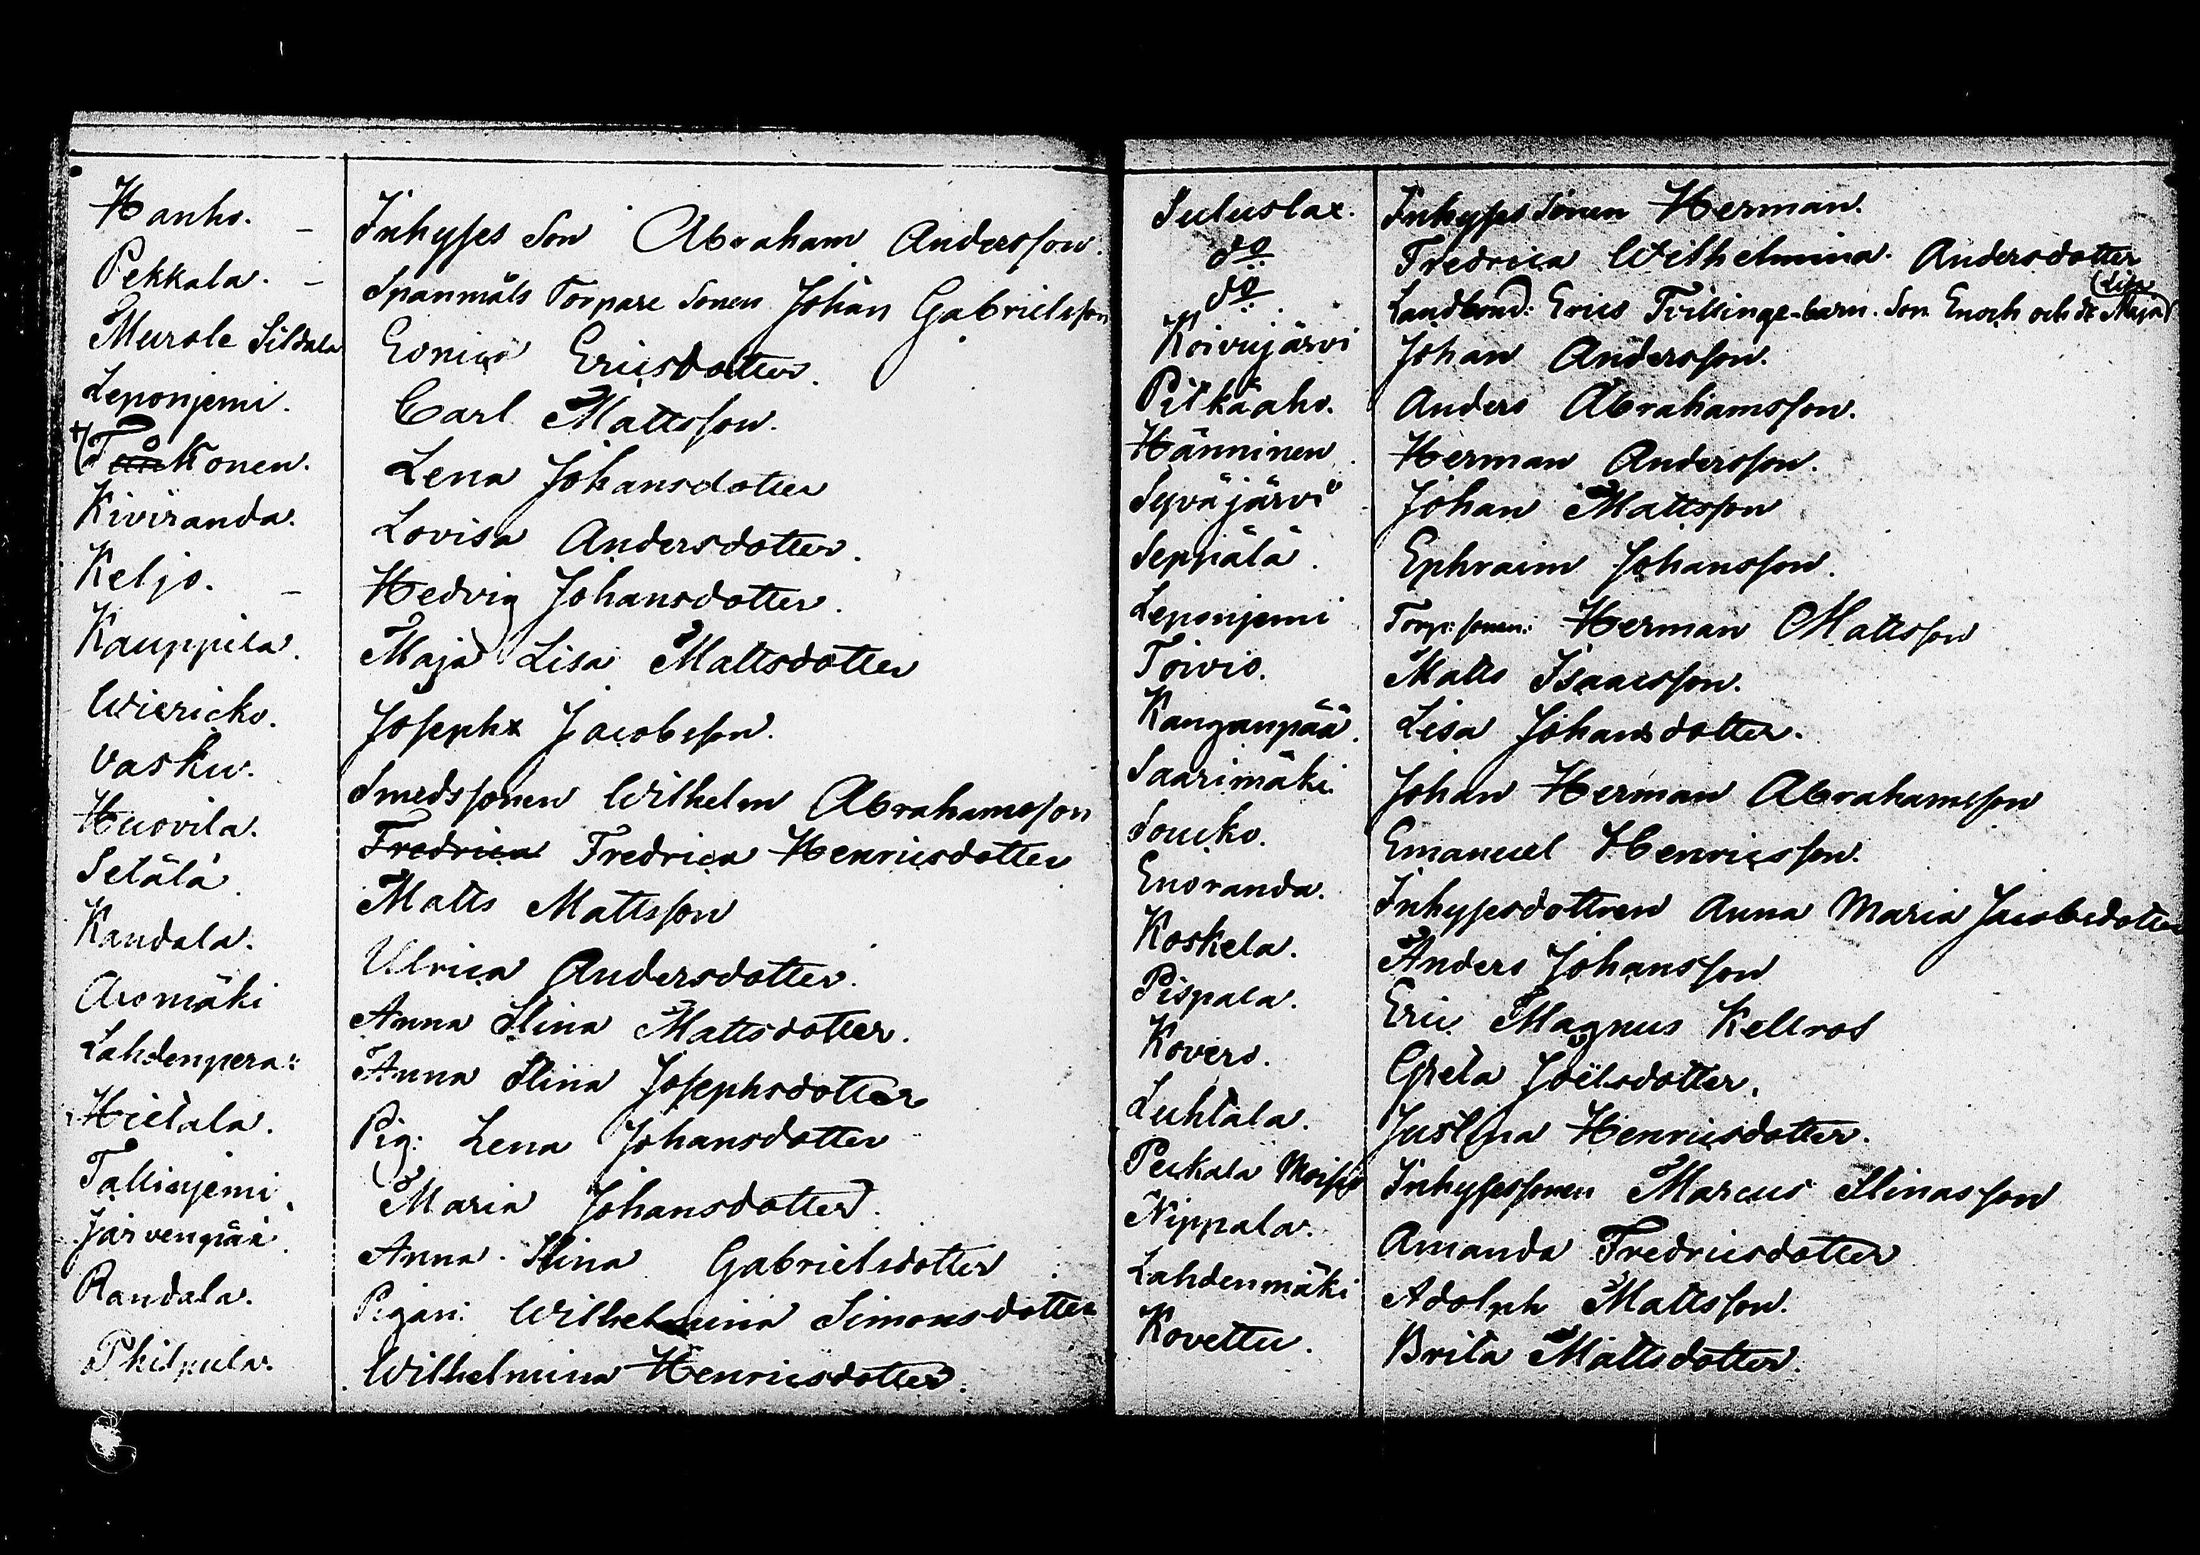 Hanho. – Inhyses Son Abraham Andersson.
Pekkala. – Spanmåls Torpare Sonen Johan Gabrielsson
Murole Sildala Ericsdotter.
Leponjemi. Carl Mattsson.
Konen. Lena Johansdotter
Kiviranda. Lovisa Andersdotter.
Keljo. – Hedvig Johansdotter.
Kauppila. Maja Lisa Mattsdotter
Wiericko. Joseph Jacobsson.
Vasku. Smedssonen Wilhelm Abrahamsson
Huovila. Fredrica Fredrica Henricsdotter
Setälä. Matts Mattsson
Kandala. Ulrica Andersdotter.
Aromäki Anna Stina Mattsdotter.
Lahdenperä: Anna Stina Josephsdotter
Hietala. Pig: Lena Johansdotter
Tallinjemi. Maria Johansdotter.
Järvenpää. Anna Stina Gabrielsdotter
Randala. Pigan: Wilhelmina Simonsdotter
Philpula. Wilhelmina Henricsdotter.
Suluslax. Inhyses Sonen Herman.
do Fredrica Wilhelmina Andersdotter
do Landbond: Erics Tvillinge-barn. Son Enoch och dr Maja (Lisa)
Koivujärvi Johan Andersson.
Pitkäaho. Anders Abrahamsson.
Hänninen. Herman Andersson.
Syväjärvi Johan Mattsson
Seppälä. Ephraim Johansson.
Leponjemi Torp: sonen: Herman Mattsson
Toivio. Matts Isaacsson.
Kanganpää. Lisa Johansdotter.
Saarimäki. Johan Herman Abrahamsson
Soucko. Emanuel Henricsson.
Enoranda. Inhysesdottren Anna Maria Jacobsdotter
Koskela. Anders Johansson
Pispala. Eric Magnus Kellros
Kovero. Greta Joëlsdotter.
Luhtala. Justina Henricsdotter.
Puckala Moisio Inhysessonen Marcus Stinasson
Nippala. Amanda Fredricsdotter
Lahdenmäki Adolph Mattsson.
Kovettu. Brita Mattsdotter.